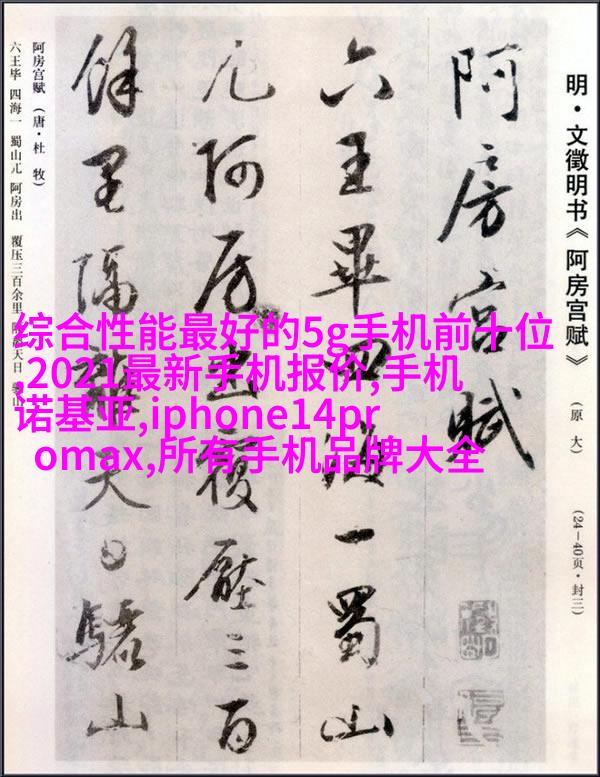 明·文徵明书《阿房宫赋》
（原大）
（24—40页·封三）
阿房宮賦
六王畢四海一蜀山
兀阿房出覆壓三百
餘里隔離天日驪山
阿房宫赋（唐·杜牧）
六王毕 四海一 蜀山兀 阿房出 覆压三百余里 天日 山
综合性能最好的5g手机前十位
,2021最新手机报价,手机
诺基亚,iphone14pr
omax,所有手机品牌大全